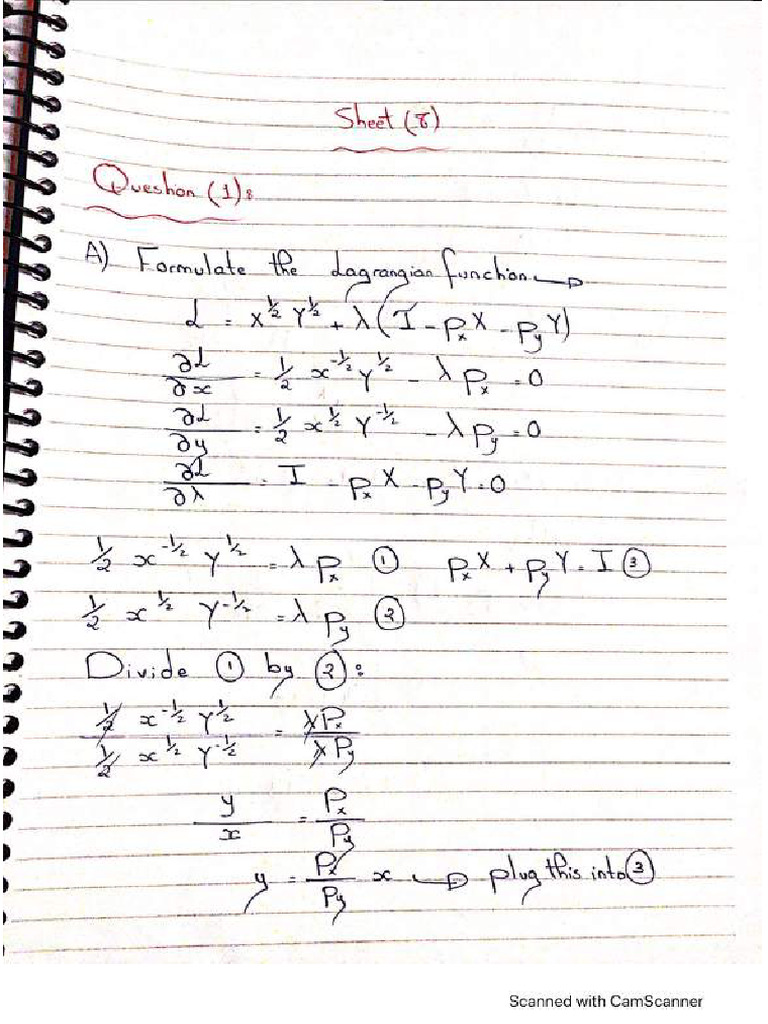 Sheet (8)
Question (1):
A) Formulate the Lagrangian function →
L = X^½ Y^½ + λ(I - PₓX - P_yY)
∂L/∂x = ½ x^-½ Y^½ - λPₓ = 0
∂L/∂y = ½ x^½ Y^-½ - λP_y = 0
∂L/∂λ = I - PₓX - P_yY = 0
½ x^-½ Y^½ = λPₓ ① PₓX + P_yY = I ③
½ x^½ Y^-½ = λP_y ②
Divide ① by ②:
½ x^-½ Y^½ / ½ x^½ Y^-½ = λPₓ / λP_y
y/x = Pₓ/P_y
y = Pₓ/P_y x → plug this into ③
Scanned with CamScanner